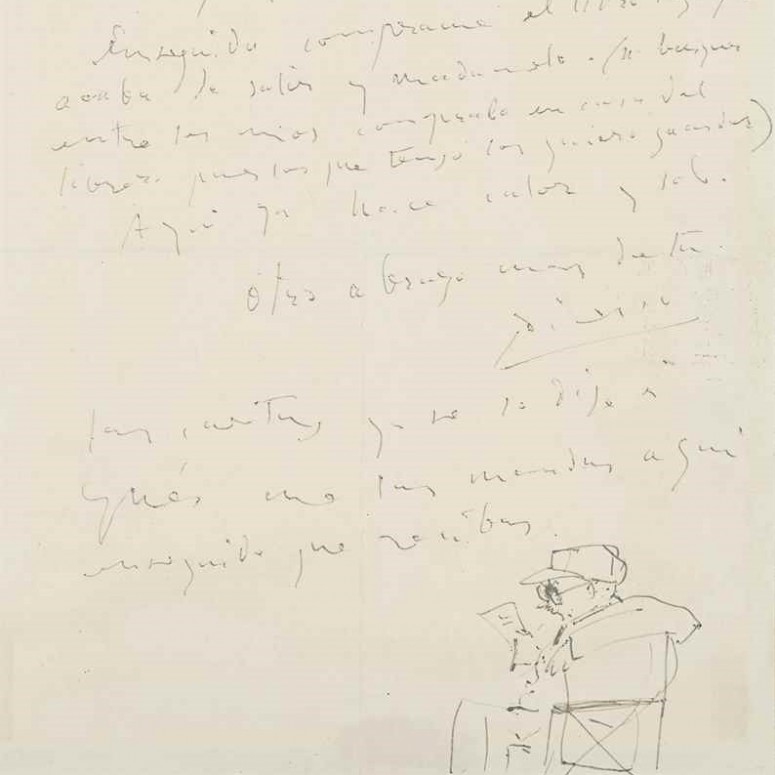 Enseguida comprame el libro
acaba de salir y mandamelo. (no busques
entre los mios compralo en casa del
librero pues los que tengo los quiero guardar)
Aqui ya hace calor y sol.
Otro abrazo mas de tu
las cartas ya te lo dije
que me las mandas aqui
enseguida que recibas.